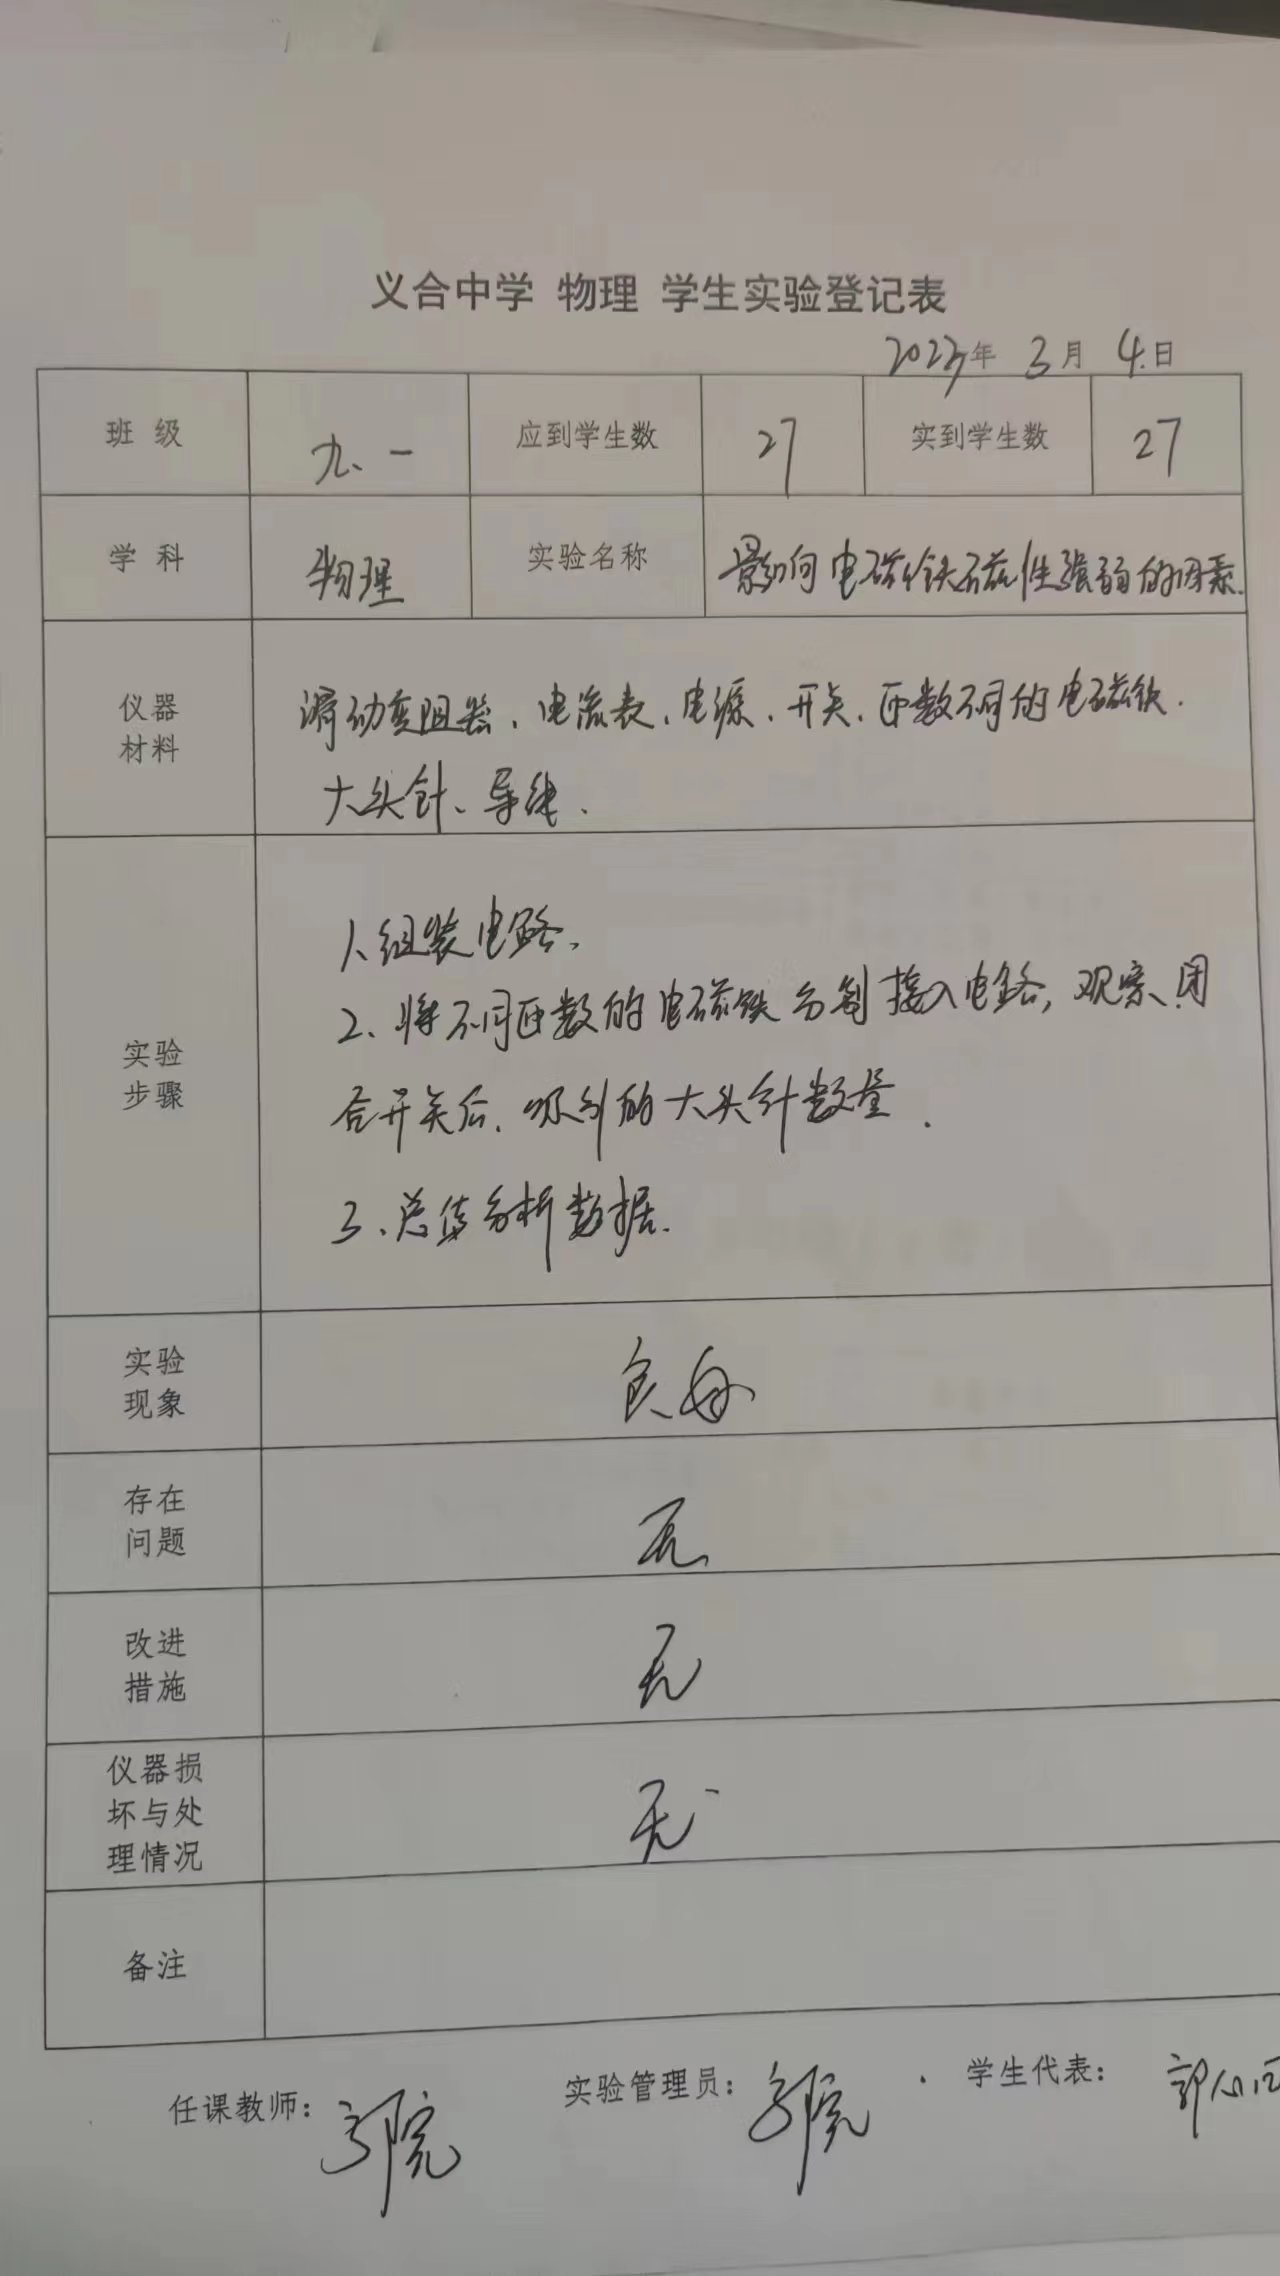 义合中学 物理 学生实验登记表
年 3月 4日
班级 九、一 应到学生数 27 实到学生数 27
学科 物理 实验名称 影响电磁铁磁性强弱的因素.
仪器
材料
滑动变阻器、电流表、电源、开关、匝数不同的电磁铁.
大头针、导线.
实验
步骤
1、组装电路、
2、将不同匝数的电磁铁分别接入电路，观察、闭
合开关后，吸引的大头针数量.
3、总结分析数据.
实验
现象
良好
存在
问题
无
改进
措施
无
仪器损
坏与处
理情况
无
备注
任课教师：
实验管理员：
学生代表：